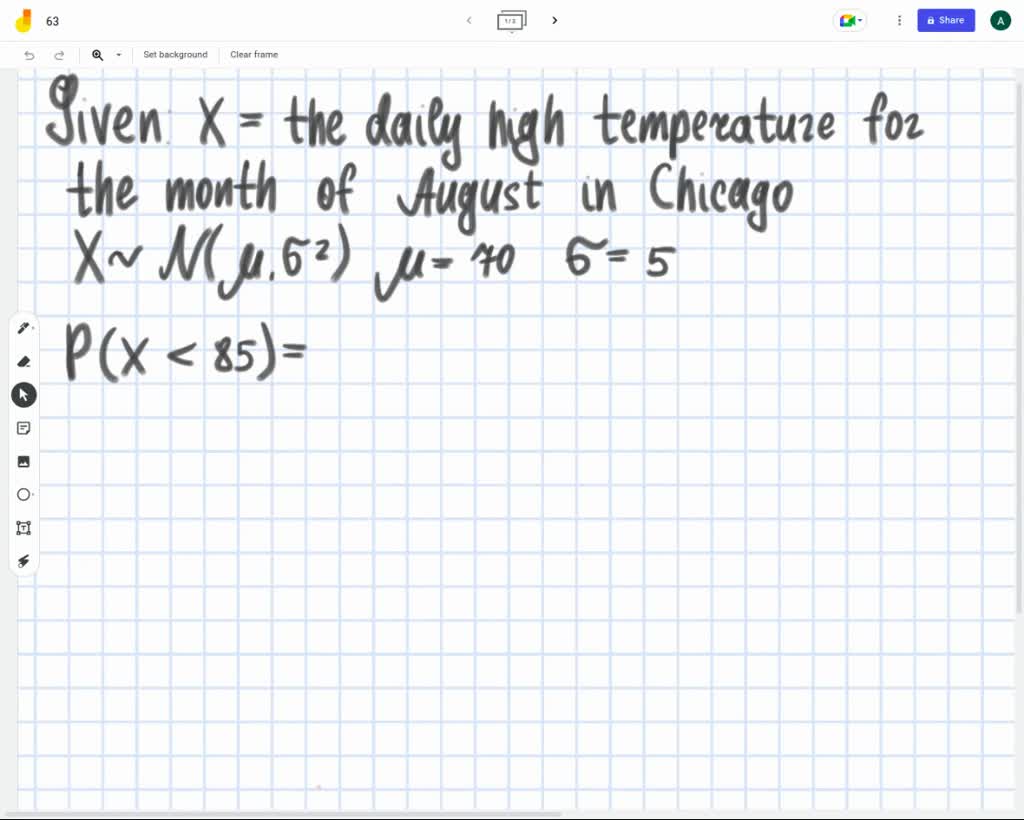 63
1/2
Share
A
Set background
Clear frame
Given: X = the daily high temperature for
the month of August in Chicago
X ~ N(μ, σ²) μ = 70 σ = 5
P(X < 85) =